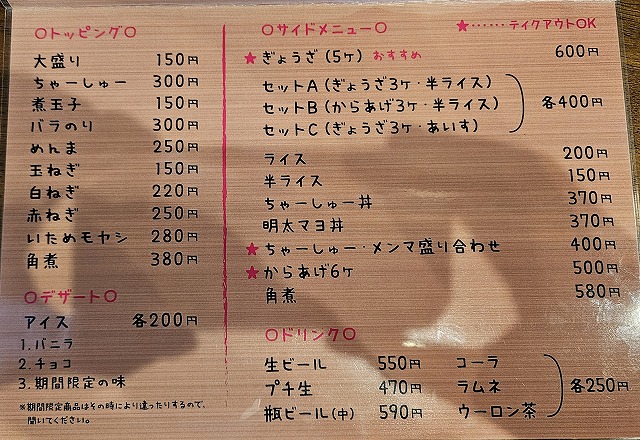 〇トッピング〇
大盛り 150円
ちゃーしゅー 300円
煮玉子 150円
バラのり 300円
めんま 250円
玉ねぎ 150円
白ねぎ 220円
赤ねぎ 250円
いためモヤシ 280円
角煮 380円
〇デザート〇
アイス 各200円
1.バニラ
2.チョコ
3.期間限定の味
※期間限定商品はその時により違ったりするので、
聞いてください。
〇サイドメニュー〇
★……テイクアウトOK
★ぎょうざ(5ヶ) おすすめ 600円
セットA(ぎょうざ3ヶ・半ライス)
セットB(からあげ3ヶ・半ライス) 各400円
セットC(ぎょうざ3ヶ・あいす)
ライス 200円
半ライス 150円
ちゃーしゅー丼 370円
明太マヨ丼 370円
★ちゃーしゅー・メンマ盛り合わせ 400円
★からあげ6ヶ 500円
角煮 580円
〇ドリンク〇
生ビール 550円
プチ生 470円
瓶ビール(中) 590円
コーラ
ラムネ 各250円
ウーロン茶